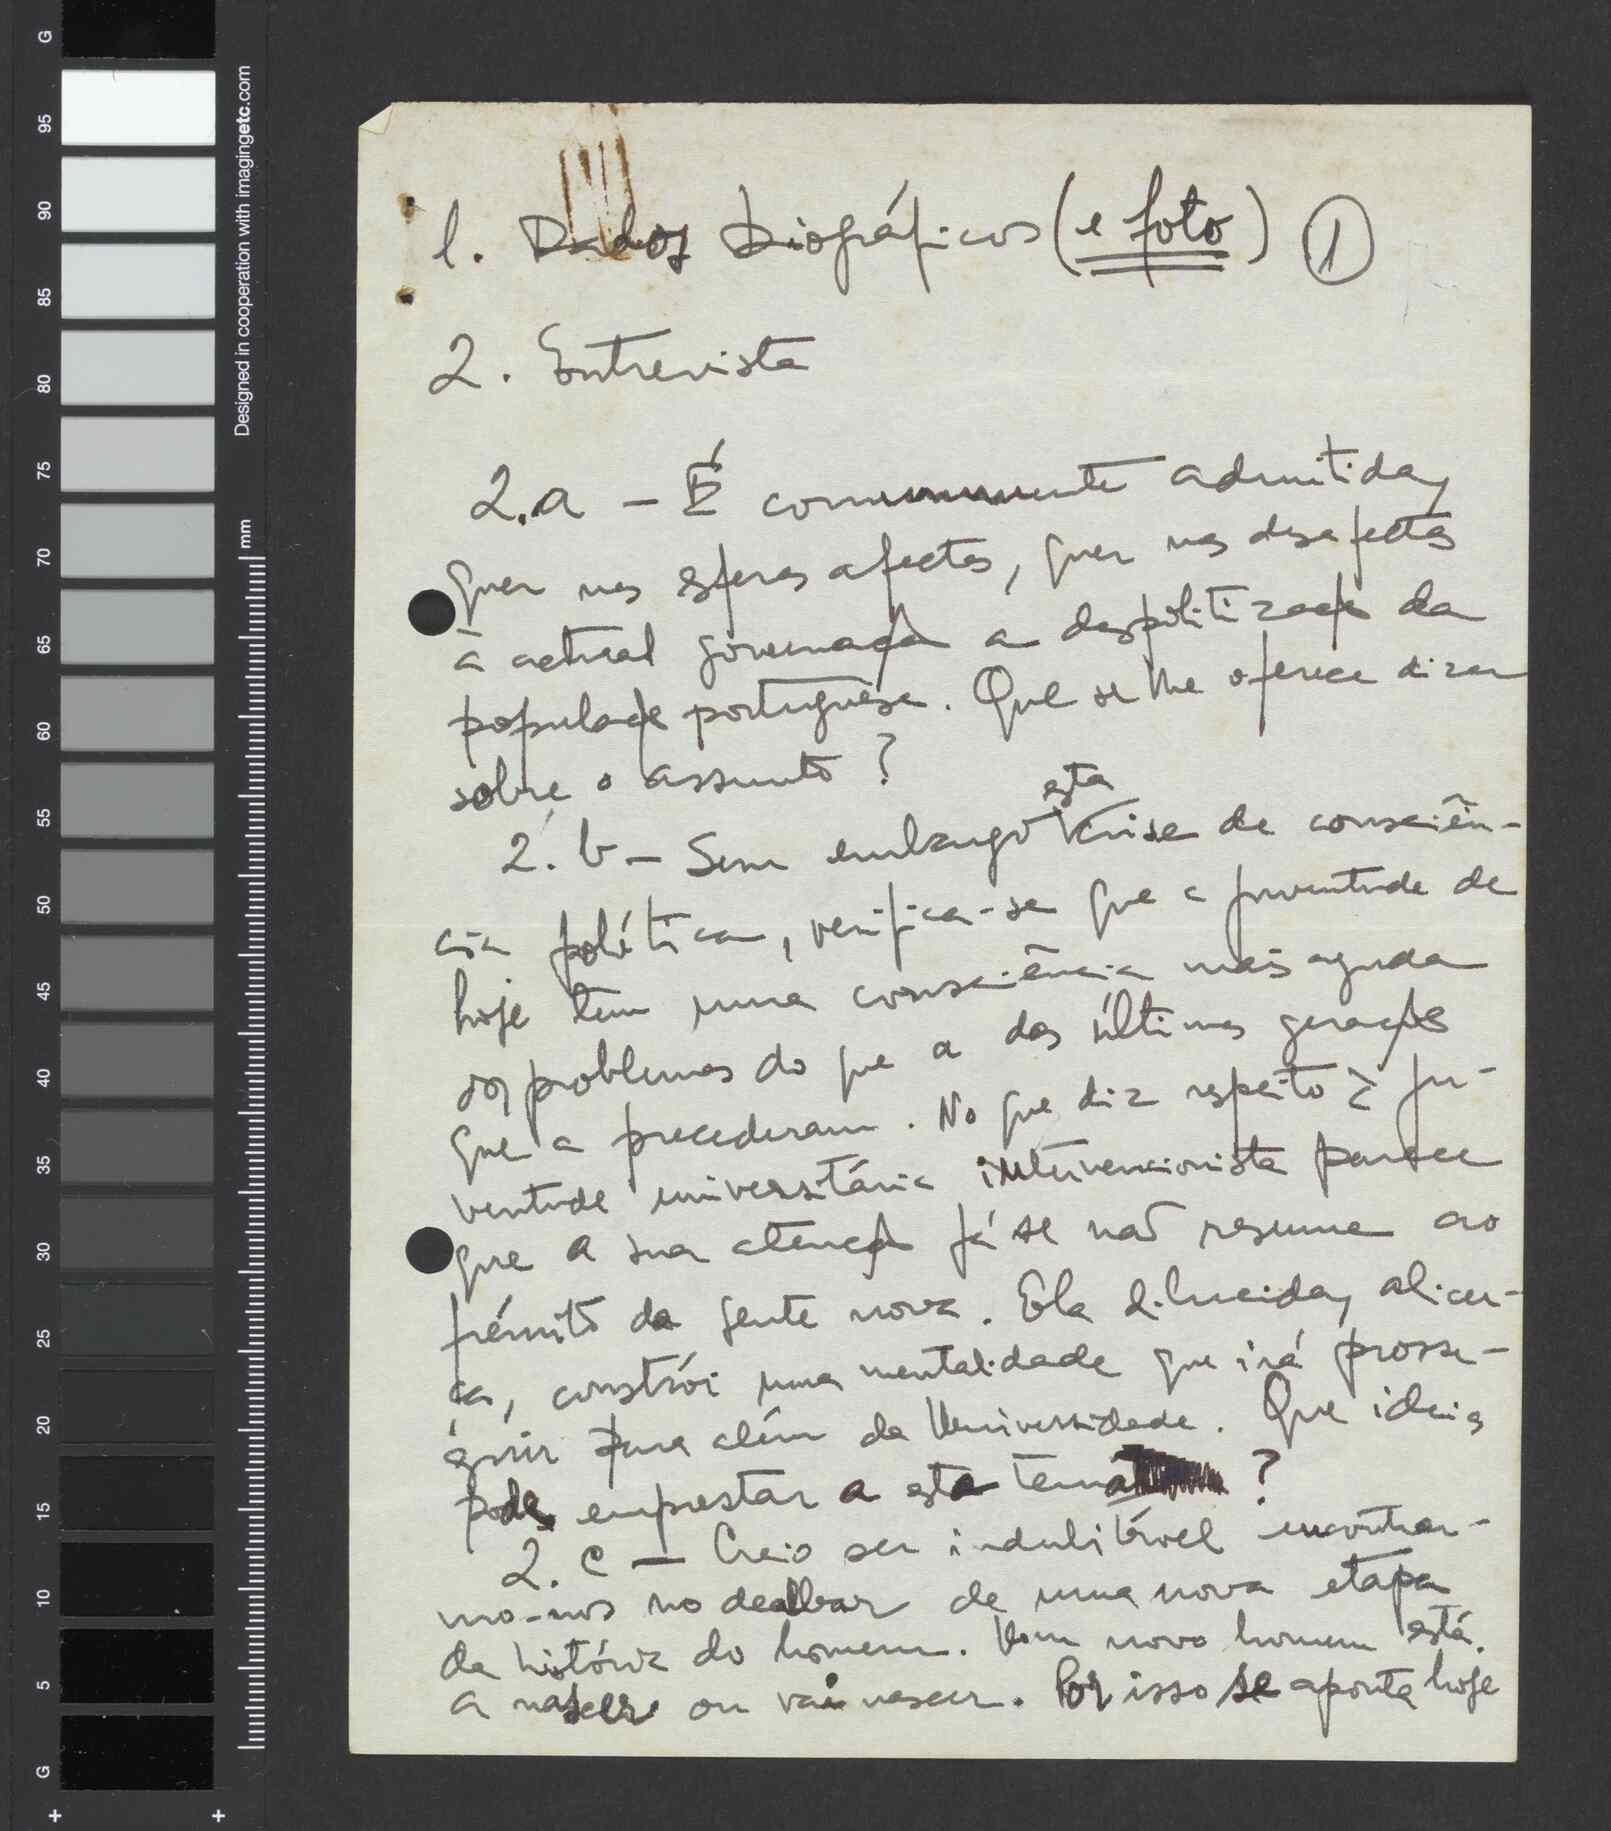 1. Dados biográficos (e foto) 1
2. Entrevista
2.a - É comummente admitida,
quer nas esferas afectas, quer nas desafectas
à actual governação a despolitização da
população portuguesa. Que se lhe oferece dizer
sobre o assunto?
2.b - Sem embargo esta crise de consciên-
cia política, verifica-se que a juventude de
hoje tem uma consciência mais aguda
dos problemas do que a das últimas gerações
que a precederam. No que diz respeito à ju-
ventude universitária intervencionista parece
que a sua atenção já se não resume ao
frémito da gente nova. Ela dilucida, alicer-
ça, constrói uma mentalidade que irá prosse-
guir para além da Universidade. Que ideias
pode emprestar a este tema ?
2.c - Creio ser indubitável encontrar-
mo-nos no dealbar de uma nova etapa
da história do homem. Um novo homem está
a nascer ou vai nascer. Por isso se aponta hoje
G
95
90
85
80
75
70
65
60
55
50
45
40
35
30
25
20
15
10
5
G
Designed in cooperation with imagingetc.com
mm